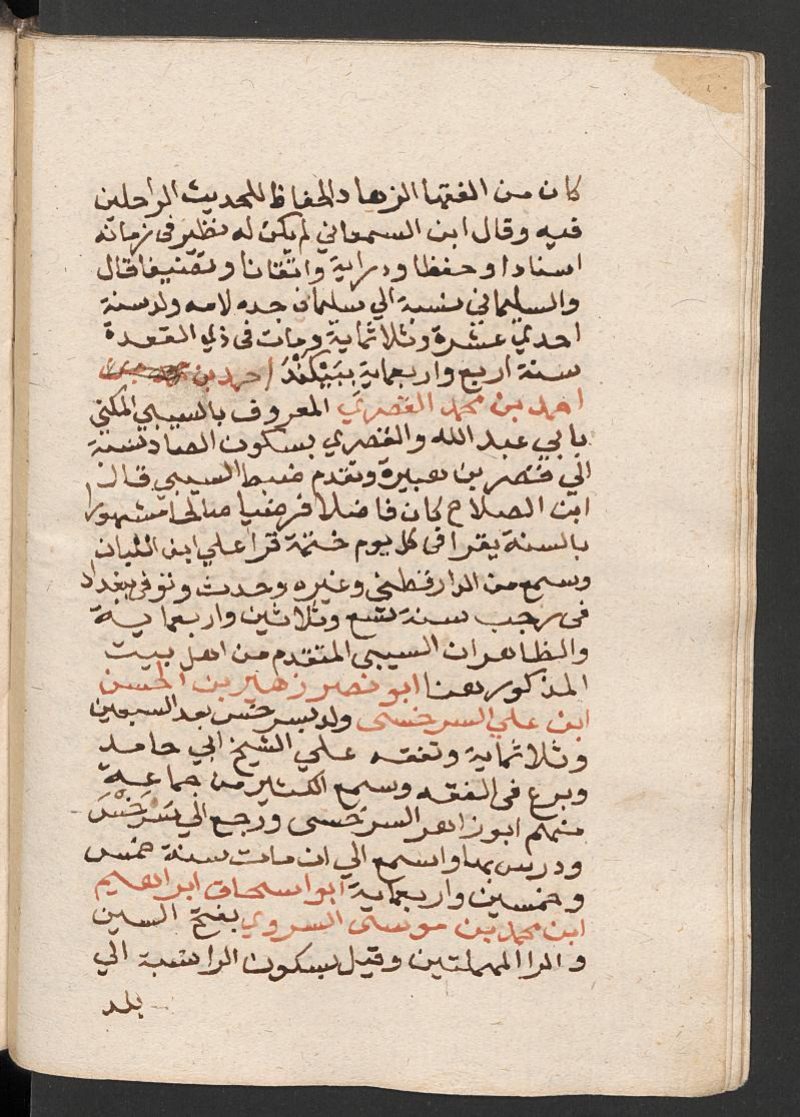 كان من الفقها الزهاد والحفاظ للحديث الراحلين
فيه وقال ابن السمعاني لم يكن له نظير في زمانه
اسنادا وحفظا ودراية واتقانا وتصنيفا قال
والسليماني نسبة الي سليمان جده لامه ولد سنة
احدي عشرة وثلاثماية ومات في ذي القعدة
سنة اربع واربعماية ببَيْكَنْدَ احمد بن محمد
احمد بن محمد القصري المعروف بالسيبي المكني
بابي عبد الله والقصري بسكون الصاد نسبة
الي قصر بن هبيرة وتقدم ضبط السيبي قال
ابن الصلاح كان فاضلا فرضيا صالحا مشهورا
بالسنة يقرا في كل يوم ختمة قرا علي ابن اللبان
وسمع من الدارقطني وغيره وحدث وتوفي ببغداد
في رجب سنة تسع وثلاثين واربعماية
والظاهر ان السيبي المتقدم من اهل بيت
المذكور هنا ابو نصر زهير بن الحسن
ابن علي السرخسي ولد بسرخس بعد السبعين
وثلاثماية وتفقه علي الشيخ ابي حامد
وبرع في الفقه وسمع الكثير من جماعة
منهم ابو زاهر السرخسي ورجع الي سَرَخْسَ
ودرس بها واسمع الي ان مات سنة خمس
وخمسين واربعماية ابو اسحاق ابراهيم
ابن محمد بن موسى السروي بفتح السين
والرا المهملتين وقيل بسكون الرا نسبة الي
بلد